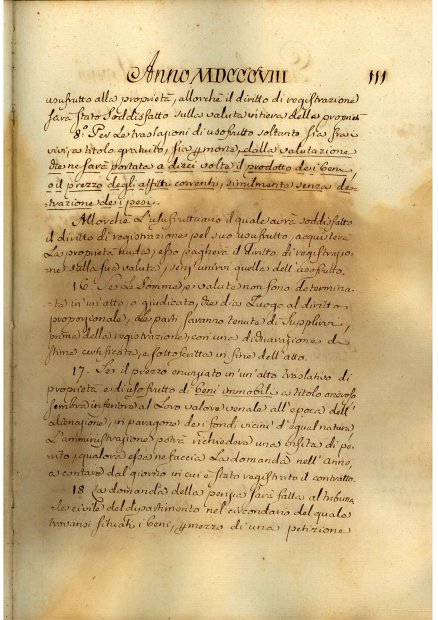 Anno MDCCCVIII 111
usufrutto alla proprietà, allorchè il diritto di registrazione
sarà stato soddisfatto sulla valuta intiera della proprietà
8.° Per le traslazioni di usofrutto soltanto fra frai
vivi, a titolo gratuito, dalla valutazione
che ne sarà portata a dieci volte il prodotto dei beni,
o il prezzo degli affitti correnti, similmente senza de-
trazione dei pesi.
Allorchè l'usufruttuario il quale avrà soddisfatto
il diritto di registrazione pel suo usufrutto, acquisterà
la proprietà nuda, esso pagherà il diritto di registrazio-
ne sulla sua valuta, senz'unirvi quella dell'usofrutto.
16. Se le somme, e valute non sono determina-
te in un'atto, o giudicato, che dia luogo al diritto
proporzionale, le parti saranno tenute di supplirvi,
prima della registrazione, con una dichiarazione
stima certificata, e sottoscritta in fine dell'atto.
17. Se il prezzo enunziato in un'atto traslativo di
proprietà, e di usofrutto di beni immobili a titolo oneroso
sembra inferiore al loro valore venale all'epoca dell'
alienazione, in paragone dei fondi vicini d'egual natura
l'amministrazione potrà richiedere una visita di pe-
rito, qualora essa ne faccia la domanda nell'anno,
a contare dal giorno in cui è stato registrato il contratto.
18 La domanda della perizia sarà fatta al tribuna-
le civile del dipartimento nel circondario del quale
trovansi situati i beni, mezzo di una petizione